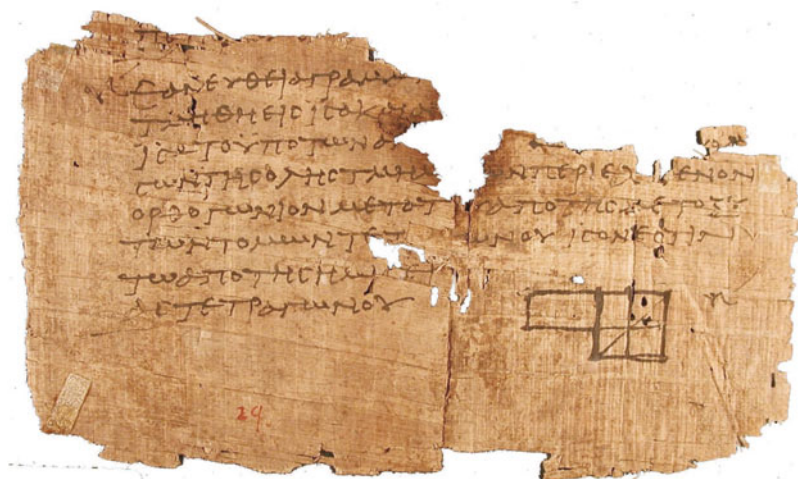 ΕΑΝ ΕΥΘΕΙΑ ΓΡΑΜΜ
ΤΜΗΘΗ ΕΙϹ ΙϹΑ ΚΑΙ
ΙϹΑ ΤΟ ΥΠΟ ΤΩΝ Α
ϹΩΝ ΤΗϹ ΟΛΗϹ ΤΜΗΜ ΩΝ ΠΕΡΙΕΧ ΜΕΝΟΝ
ΟΡΘΟΓΩΝΙΟΝ ΜΕΤΑ ΤΟΥ ΑΠΟ ΤΗϹ ΜΕΤΟΞΥ
ΤΩΝ ΤΟΜΩΝ ΤΕΤ ΩΝΟΥ ΙϹΟΝ ΕϹΤΙΝ
ΤΩ ΑΠΟ ΤΗϹ ΗΜΙ
ΔΕ ΤΕΤΡΑΓΩΝΟΥ